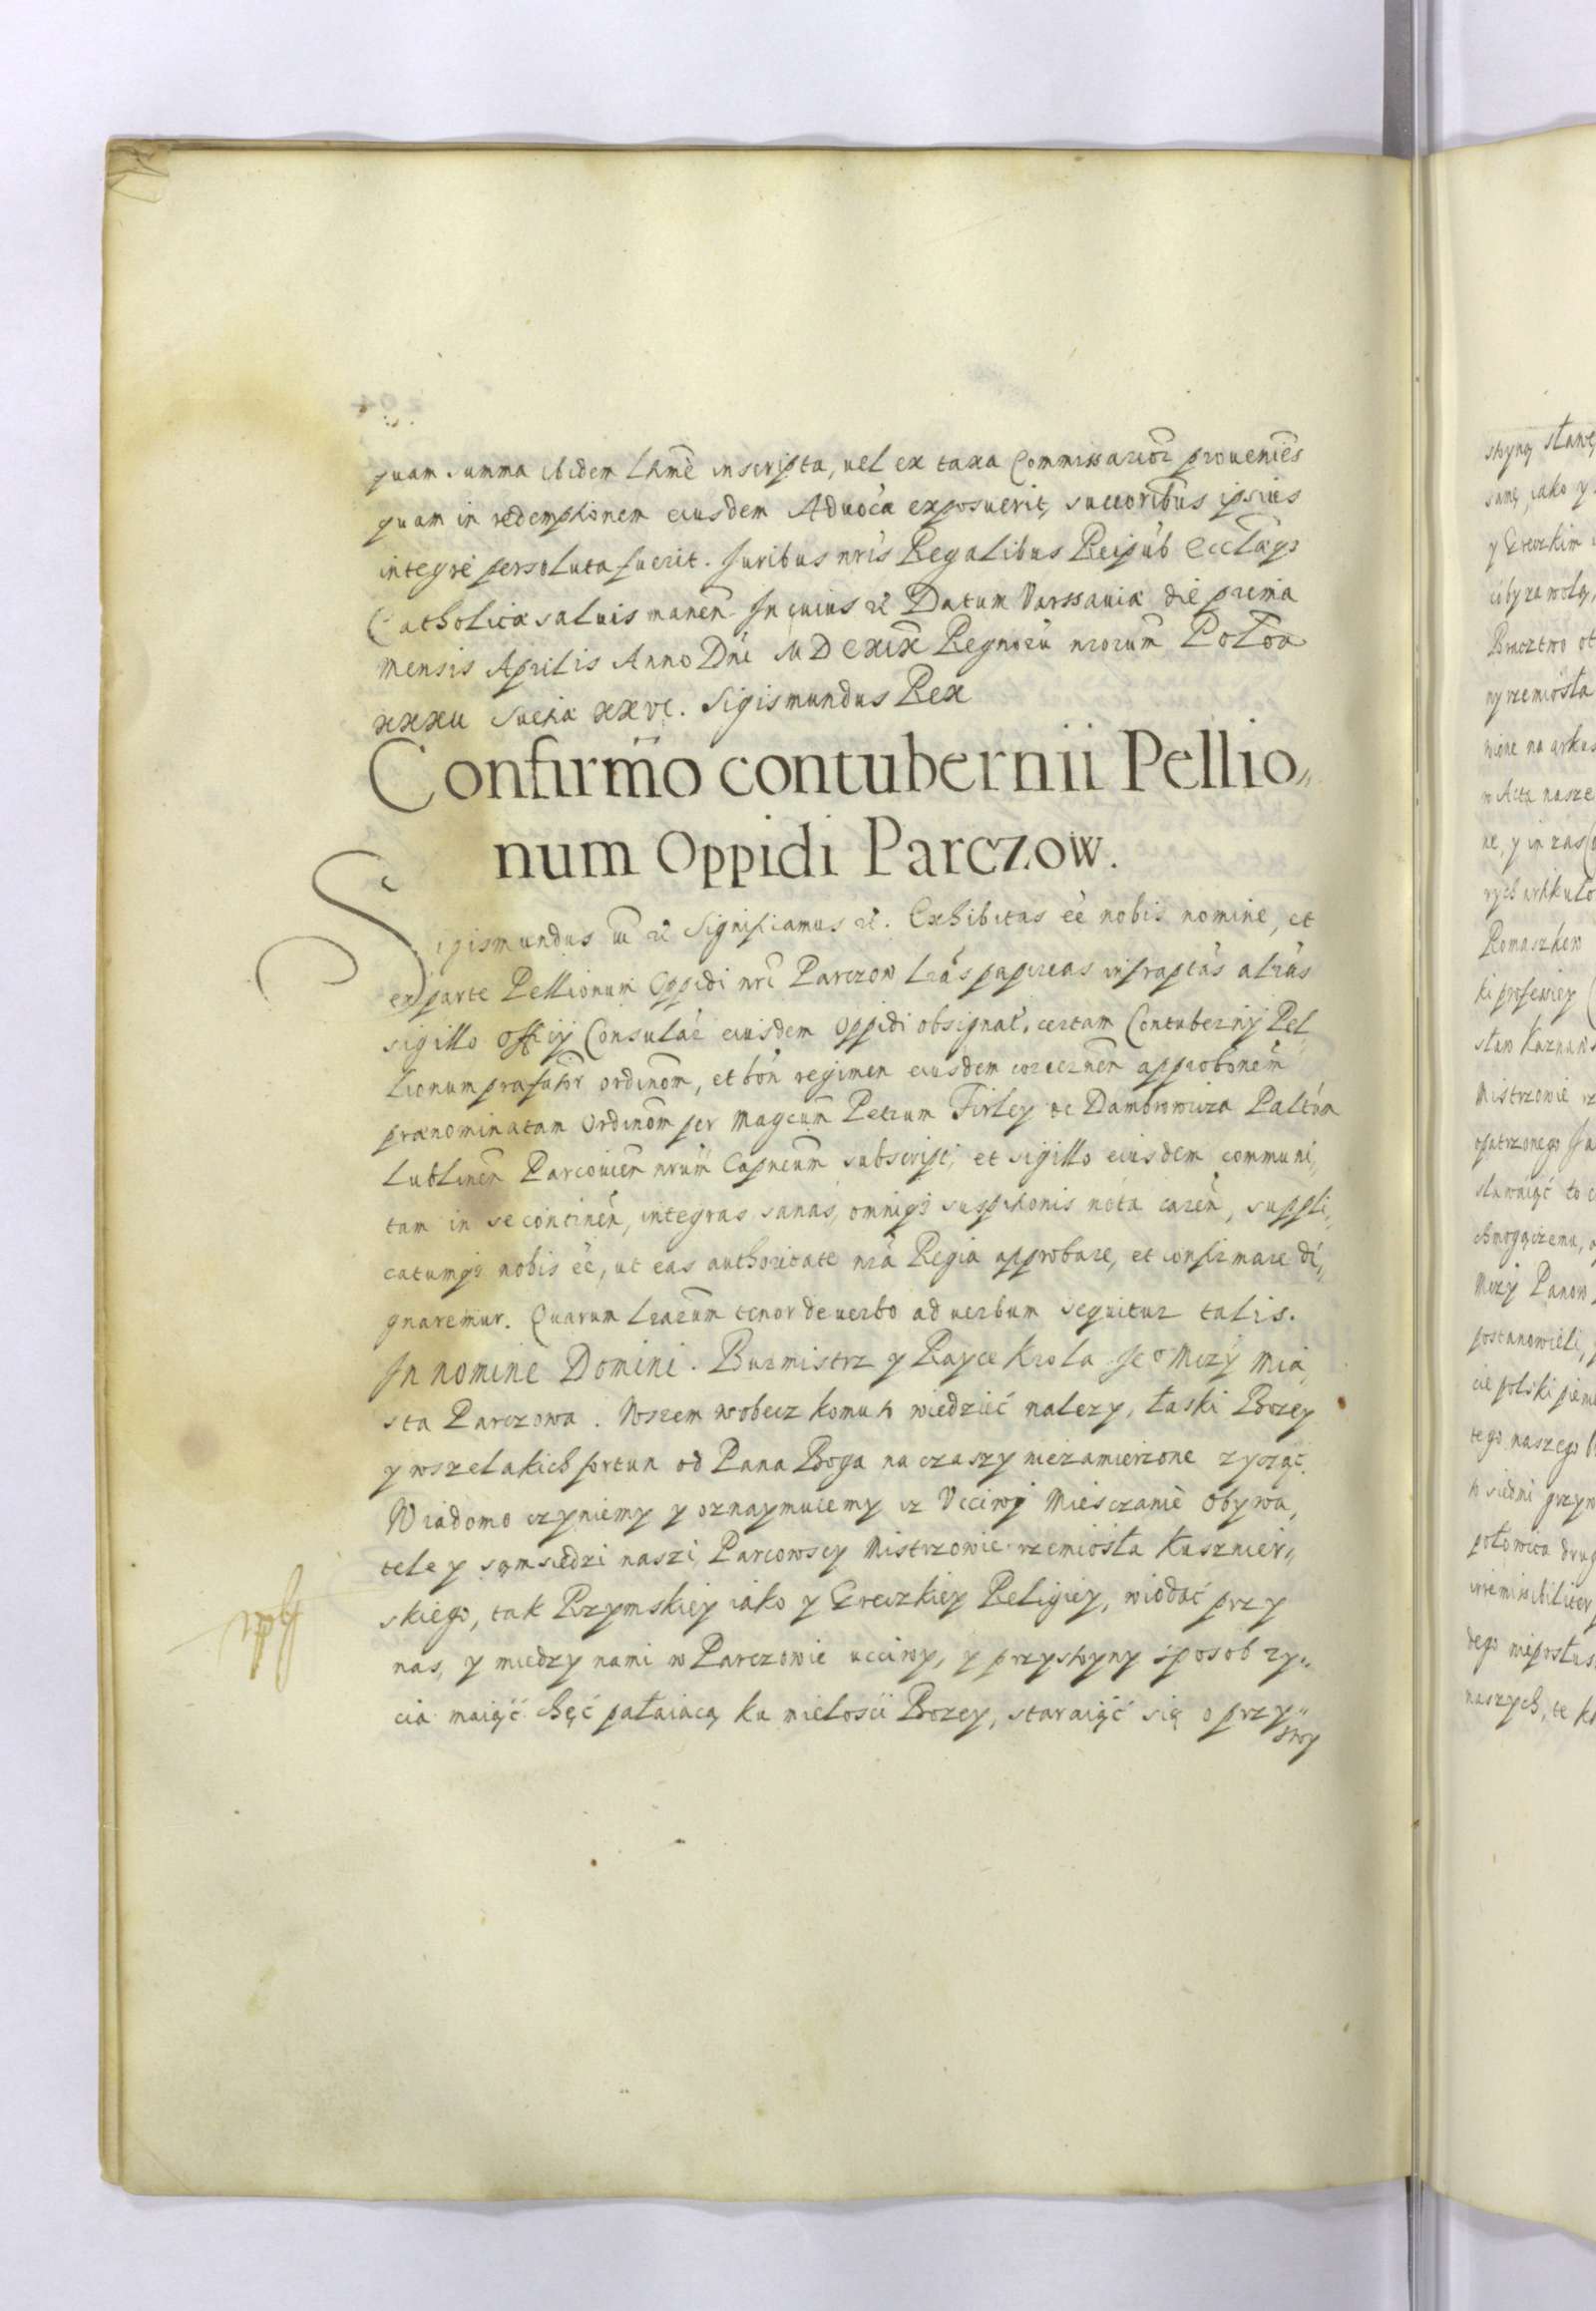 quam summa ibidem lr̃mè inscripta, uel ex taxa Commissarior̃ proueniẽs
quam in redemptionem eiusdem Aduoc̃a exposuerit, succoribus ipsius
integrè persoluta fuerit. Juribus nr̃is Regalibus Reipub Eccl̃æq3
Catholicæ saluis manen̄. In cuius rẽ Datum Varssauiæ die prima
mensis Aprilis Anno Dñi MDCXIX Regnorũ nrorum̃ Poloæ
xxxii Sueciæ xxvi. Sigismundus Rex
Confirm̃o contubernii Pellio„
num Oppidi Parczow.
Sigismundus iii rẽ Significamus rẽ. Exhibitas eẽ nobis nomine, et
ex parte Pellionum Oppidi nr̃i Parczow lr̃as papireas infraptas alias
sigillo Officij Consular̃ eiusdem Oppidi obsignat̃, certam Contubernij Pel„
lionum præfator̃ ordinom̃, et bon̄ regimen eiusdem concernen̄ approbonem̃
prænominatam Ordinom̃ per Magcum̃ Petrum Firley de Dambrowicza Palt̃in
Lublinen̄ Parcouien̄ nrum̃ Capneum̃ subscript̃, et sigillo eiusdem communi„
tam in se continen̄, integras, sanas, omniq3 suspicionis nota caren̄, suppli„
catumq3 nobis eẽ, ut eas authoritate nr̃a Regia approbare, et confirmare di„
gnaremur. Quarum lrarum̃ tenor de uerbo ad uerbum sequitur talis.
In nomine Domini. Burmistrz y Rayce Krola Je° Mczy Mia„
sta Parczowa. Wszem wobecz komu to wiedzieć nalezy, łaski Bozey
y wszelakich fortun od Pana Boga na czaszy niezamierzone zycząć.
Wiadomo czyniemy y oznaymuiemy iz Vcciwj Miesczanie Obywa„
tele y sąmsiedzi naszi, Parcowscy Mistrzowie rzemiosła Kusznier„
skiego, tak Rzymskiey iako y Greczkiey Religiey, wiodąć przy
nas, y miedzy nami w Parczowie ucciwy, y przystoyny sposob zy„
cia maiąć chęć pałaiacą ku miełosci Bozey, staraiąć się o przy„
stoy